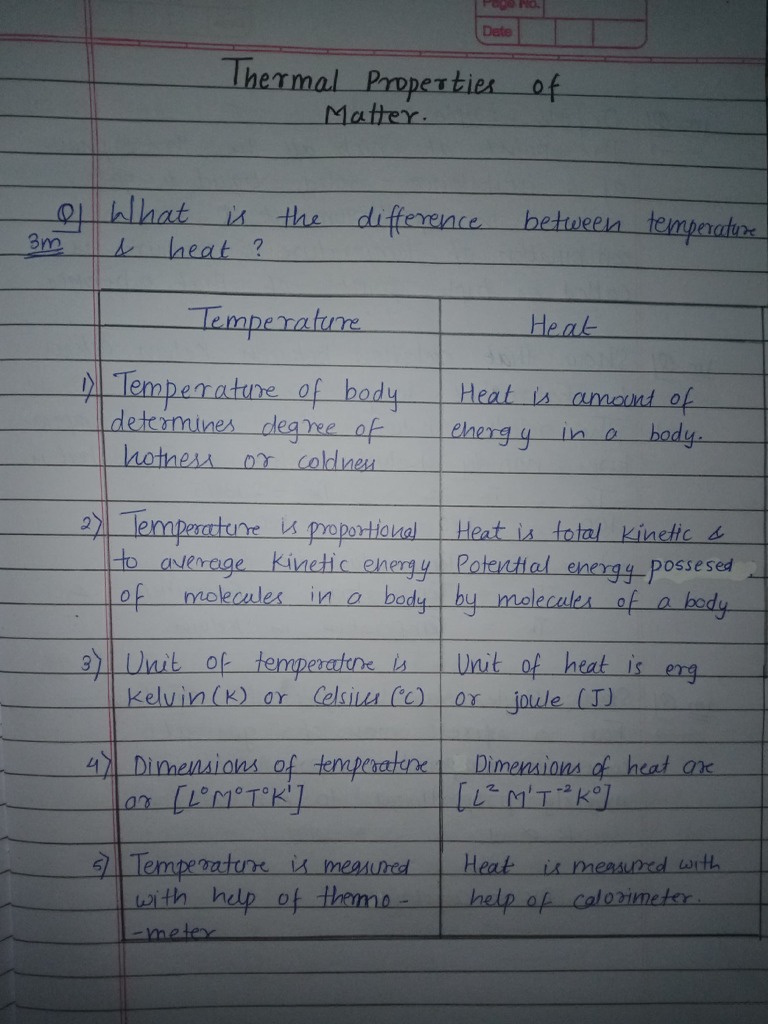 Page No.
Date
Thermal Properties of
Matter.
Q1 What is the difference between temperature
3m & heat ?
Temperature Heat
1) Temperature of body Heat is amount of
determines degree of energy in a body.
hotness or coldness
2) Temperature is proportional Heat is total kinetic &
to average kinetic energy Potential energy possesed
of molecules in a body by molecules of a body
3) Unit of temperature is Unit of heat is erg
Kelvin (K) or Celsius (°C) or joule (J)
4) Dimensions of temperature Dimensions of heat are
or [L⁰M⁰T⁰K¹] [L² M¹T⁻²K⁰]
5) Temperature is measured Heat is measured with
with help of thermo- help of calorimeter.
-meter